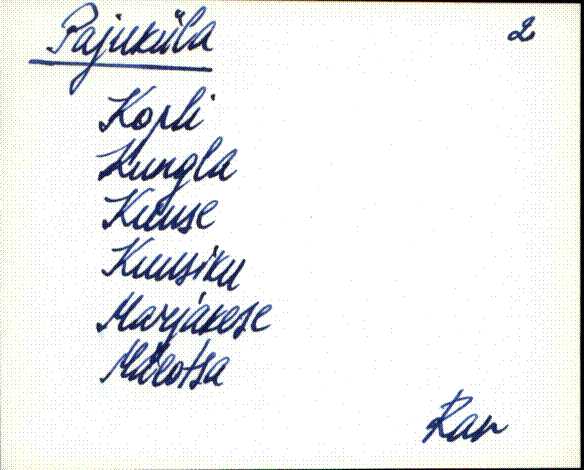 Pajuküla 2
Kopli
Kungla
Kuuse
Kuusiku
Marjakese
Mäeotsa
Rap